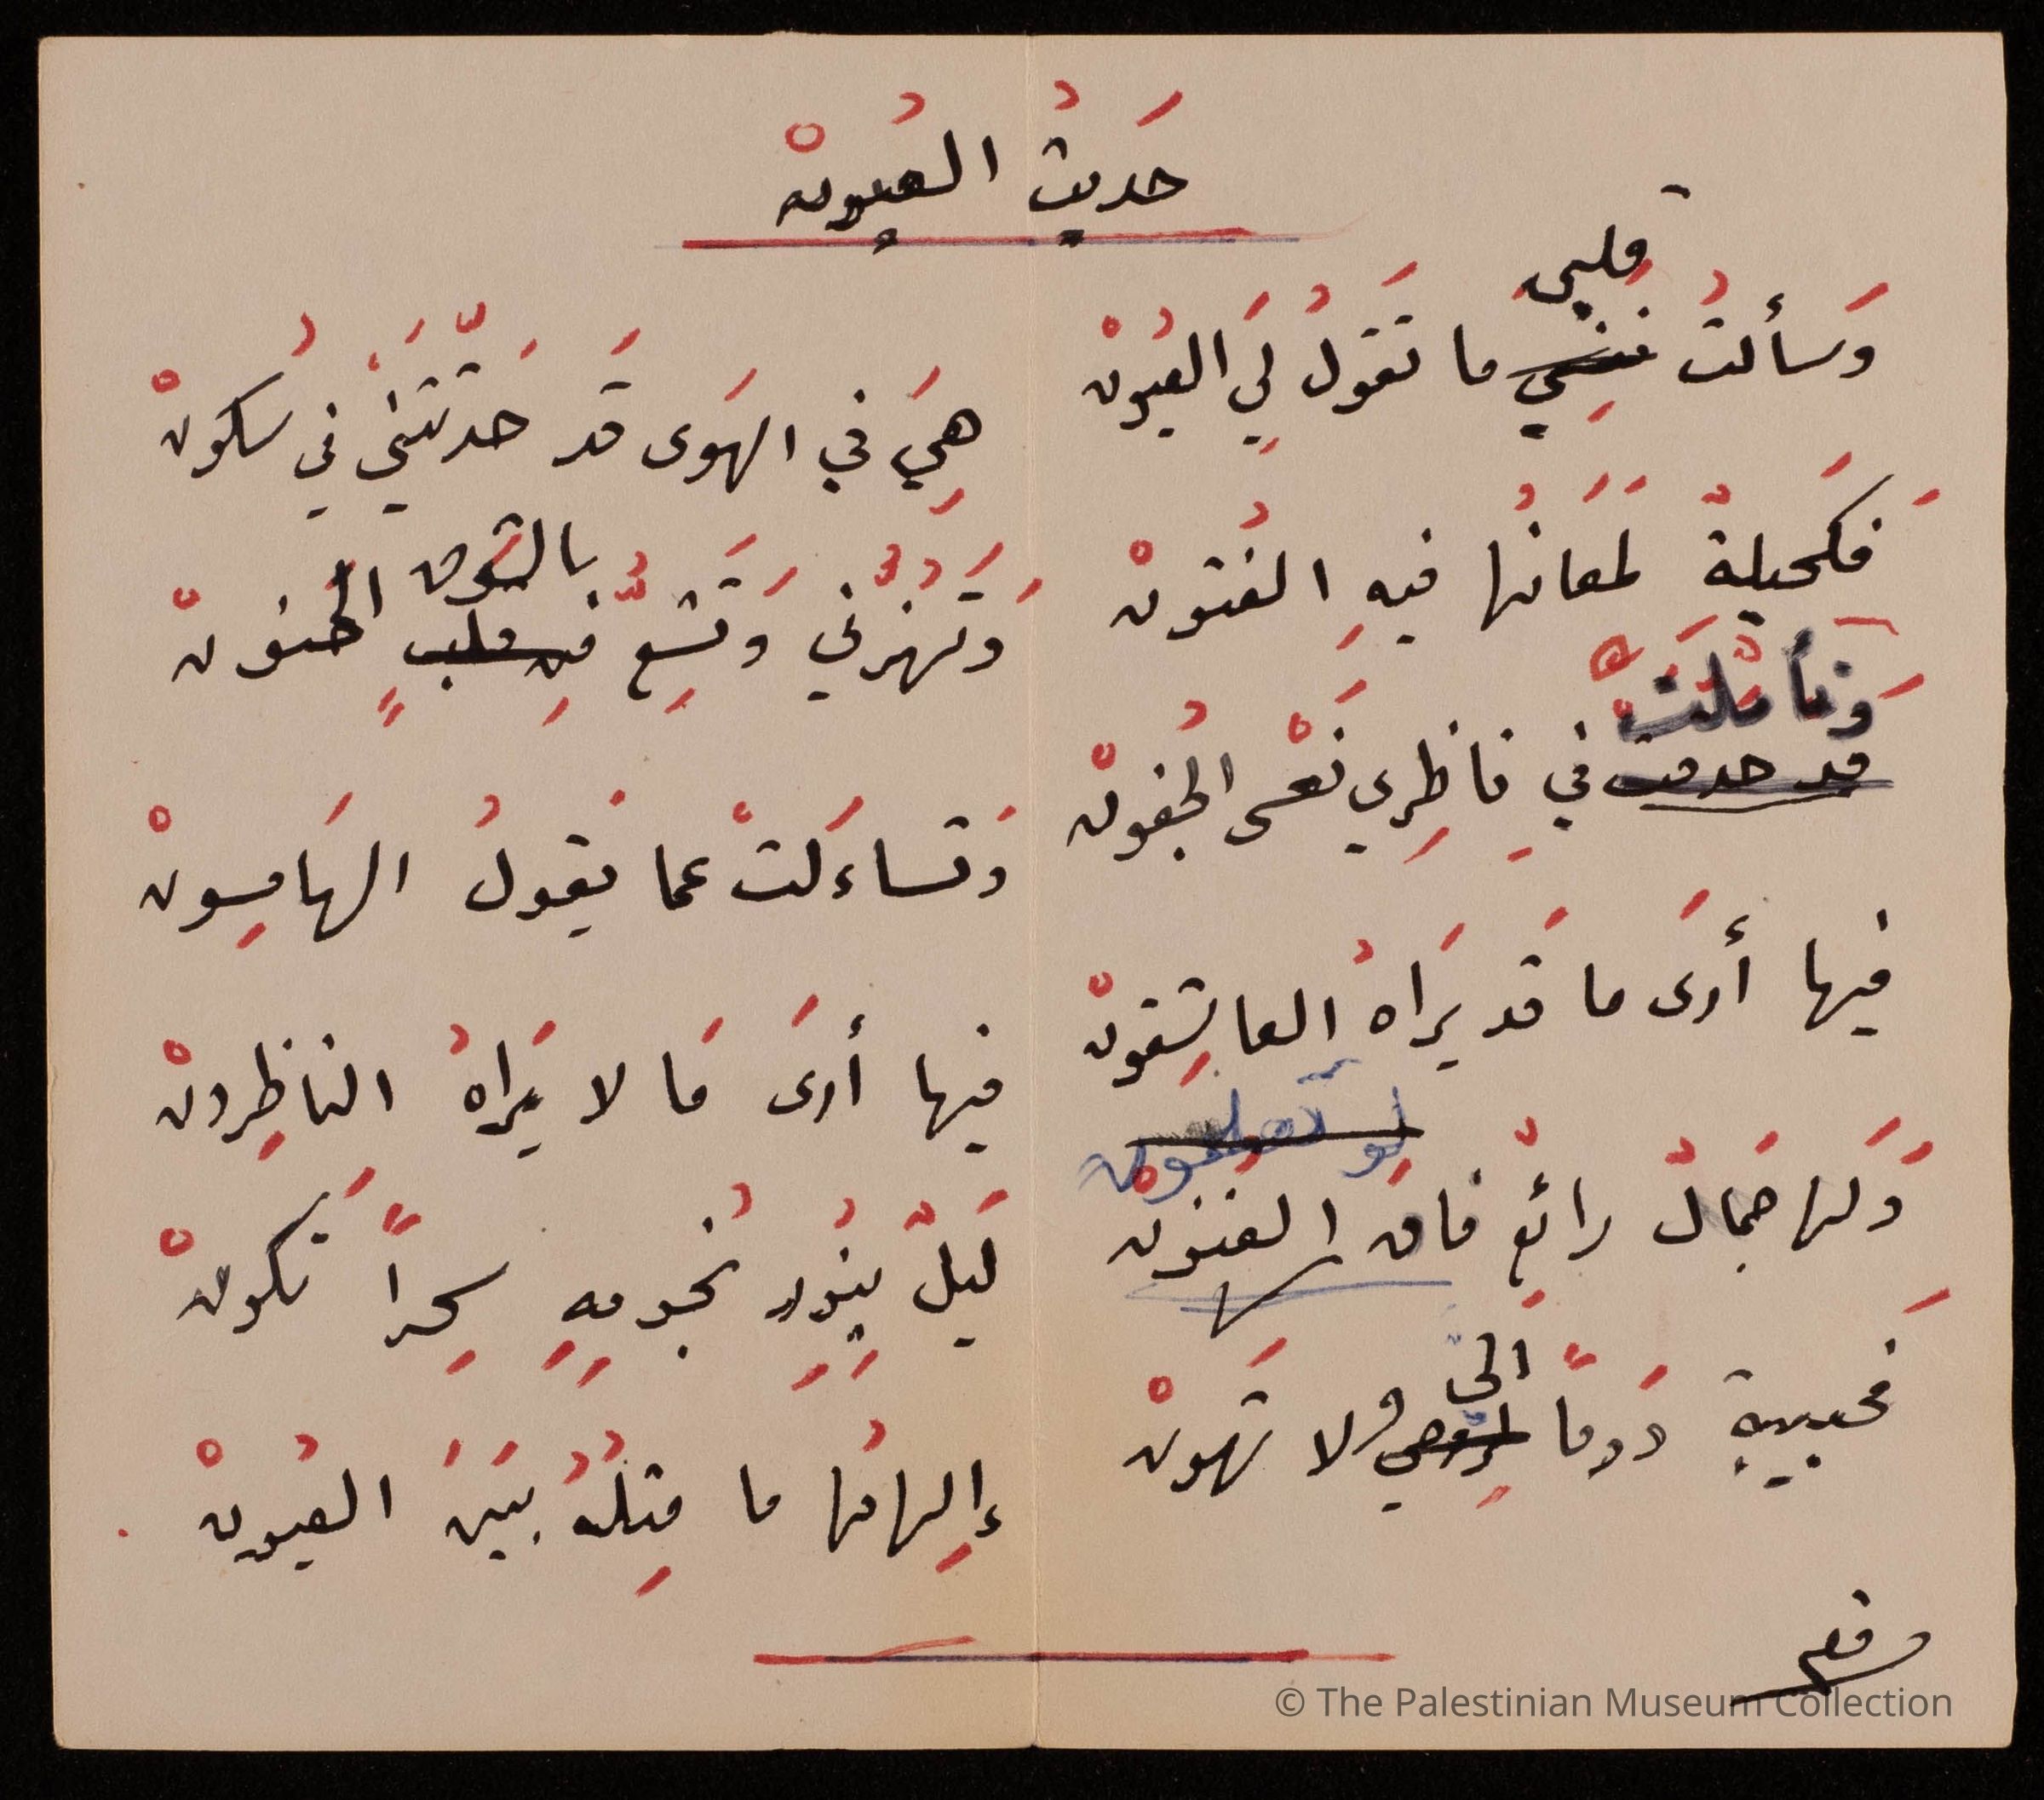 حَدَيثُ العُيونْ
قلبي
وَسألتُ نفسِي ما تَقولُ لِيَ العُيونْ
هِيَ في الهَوى قَد حَدّثَتنَي في سُكونْ
فَكَحيلةٌ لمَعَانُها فيهِ الفُتونْ
بالشَوق
وَتَهُزُّني وَتَشِعُّ مِن قلبٍ الحنونْ
وَتأملتْ
قد حدقت في ناظِري نَعْسى الجُفونْ
وَتساءَلتْ عما يَقولُ الهَامِسونْ
فيها أرَى ما قَد يَرَاهُ العاشِقونْ
فيها أرَى مَا لا يَراهُ الناظِرونْ
لو تعلمون
وَلَها جَمالٌ رائعٌ فاقَ الفنونْ
لَيلٌ بِنُورِ نُجومِهِ سِحراً تَكونْ
الي
فَحبيبة دَوماً لِروحي ولا تَهونْ
إِلهامُها ما مِثلُهُ بَينَ العُيونْ
© The Palestinian Museum Collection